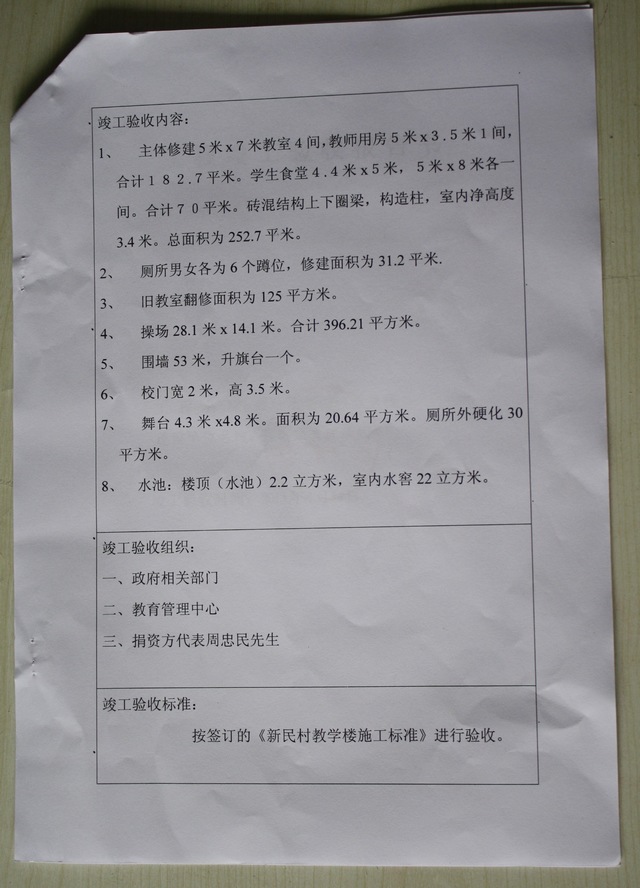 竣工验收内容：
1、 主体修建5米x7米教室4间，教师用房5米x3.5米1间，
合计182.7平米。学生食堂4.4米x5米，5米x8米各一
间。合计70平米。砖混结构上下圈梁，构造柱，室内净高度
3.4米。总面积为252.7平米。
2、 厕所男女各为6个蹲位，修建面积为31.2平米.
3、 旧教室翻修面积为125平方米。
4、 操场28.1米x14.1米。合计396.21平方米。
5、 围墙53米，升旗台一个。
6、 校门宽2米，高3.5米。
7、 舞台4.3米x4.8米。面积为20.64平方米。厕所外硬化30
平方米。
8、 水池：楼顶（水池）2.2立方米，室内水窖22立方米。
竣工验收组织：
一、政府相关部门
二、教育管理中心
三、捐资方代表周忠民先生
竣工验收标准：
按签订的《新民村教学楼施工标准》进行验收。